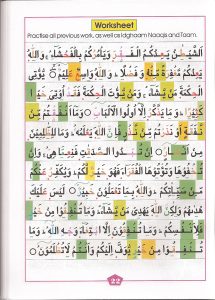 Worksheet
Practise all previous work, as well as Idghaam Naaqis and Taam.
اَلشَّيْطٰنُ يَعِدُكُمُ الْفَقْرَ وَيَاْمُرُكُمْ بِالْفَحْشَآءِ ۚ وَاللّٰهُ
يَعِدُكُمْ مَّغْفِرَةً مِّنْهُ وَفَضْلًا ؕ وَاللّٰهُ وَاسِعٌ عَلِيْمٌ ○ يُّؤْتِى
الْحِكْمَةَ مَنْ يَّشَآءُ ۚ وَمَنْ يُّؤْتَ الْحِكْمَةَ فَقَدْ اُوْتِىَ خَيْرًا
كَثِيْرًا ؕ وَمَا يَذَّكَّرُ اِلَّآ اُولُوا الْاَلْبَابِ ○ وَمَآ اَنْفَقْتُمْ مِّنْ
نَّفَقَةٍ اَوْ نَذَرْتُمْ مِّنْ نَّذْرٍ فَاِنَّ اللّٰهَ يَعْلَمُهٗ ؕ وَمَا لِلظّٰلِمِيْنَ
مِنْ اَنْصَارٍ ○ اِنْ تُبْدُوا الصَّدَقٰتِ فَنِعِمَّا هِىَ ۚ وَاِنْ
تُخْفُوْهَا وَتُؤْتُوْهَا الْفُقَرَآءَ فَهُوَ خَيْرٌ لَّكُمْ ؕ وَيُكَفِّرُ عَنْكُمْ
مِّنْ سَيِّاٰتِكُمْ ؕ وَاللّٰهُ بِمَا تَعْمَلُوْنَ خَبِيْرٌ ○ لَيْسَ عَلَيْكَ
هُدٰىهُمْ وَلٰكِنَّ اللّٰهَ يَهْدِىْ مَنْ يَّشَآءُ ؕ وَمَا تُنْفِقُوْا مِنْ خَيْرٍ
فَلِاَنْفُسِكُمْ ؕ وَمَا تُنْفِقُوْنَ اِلَّا ابْتِغَآءَ وَجْهِ اللّٰهِ ؕ وَمَا
تُنْفِقُوْا مِنْ خَيْرٍ يُّوَفَّ اِلَيْكُمْ وَاَنْتُمْ لَا تُظْلَمُوْنَ ○
22